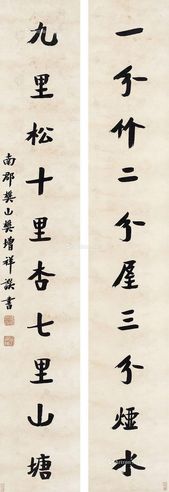 一分竹二分屋三分烟水
九里松十里杏七里山塘
南郡樊山樊增祥譔書